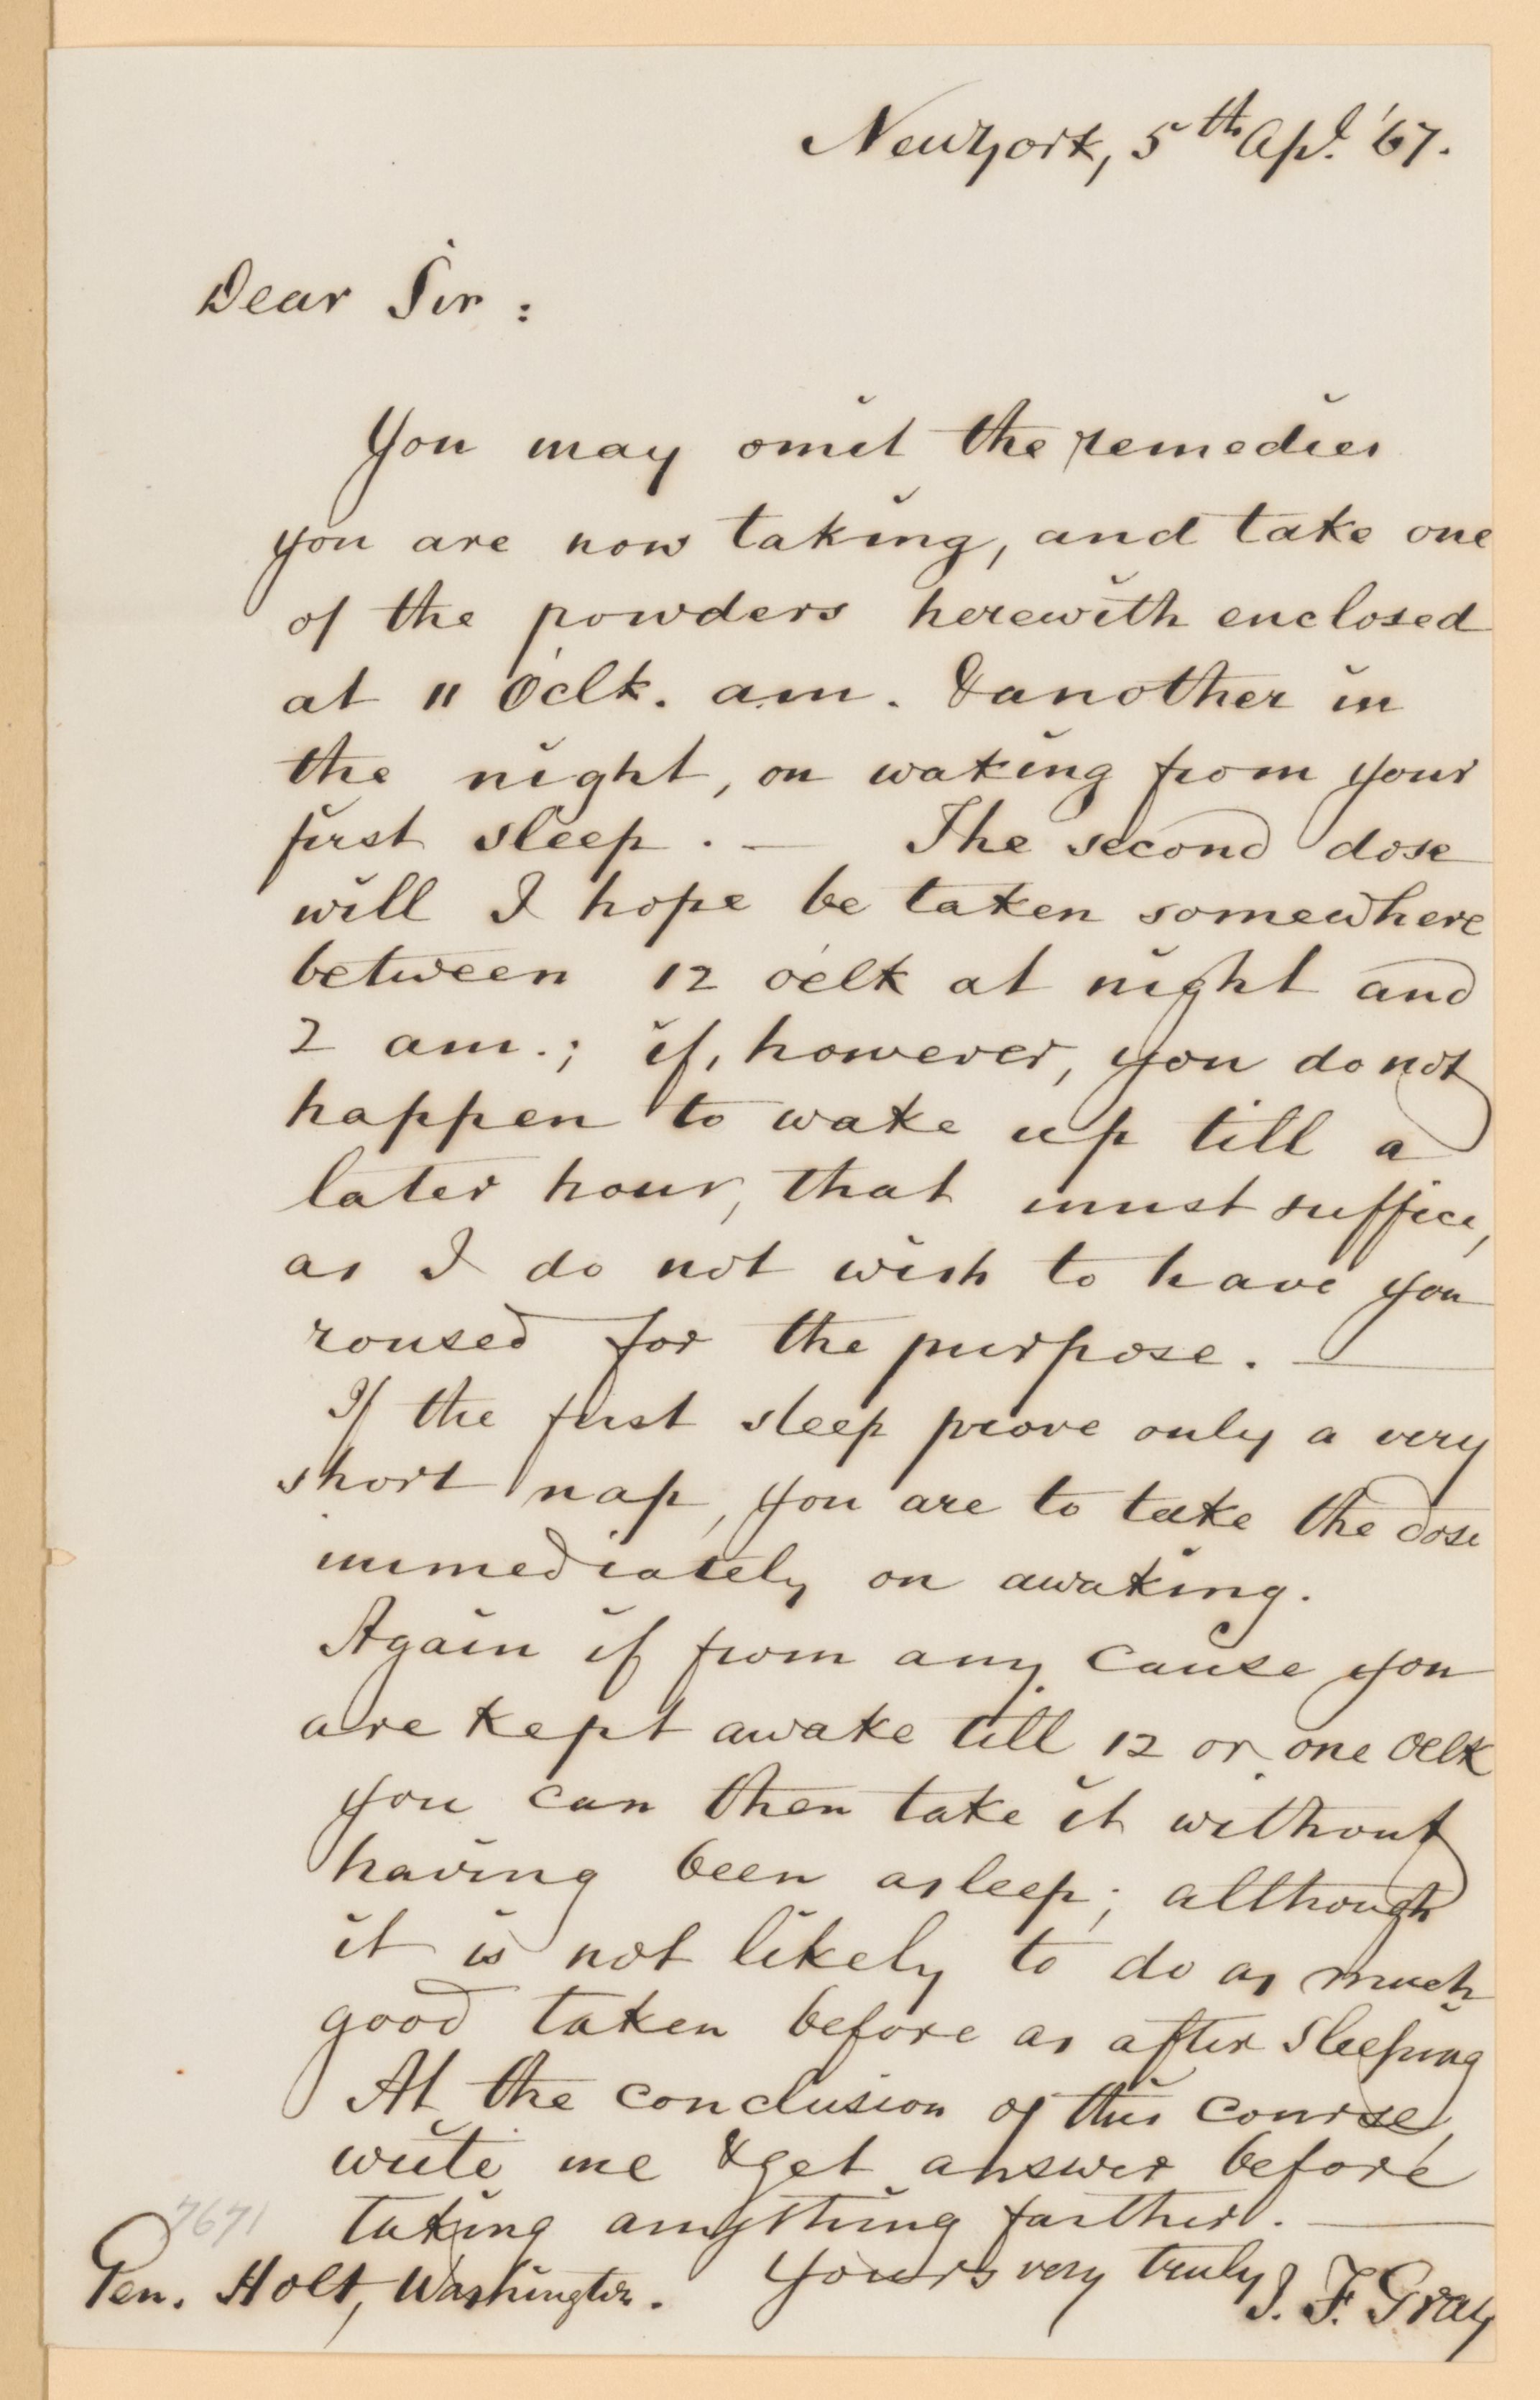 New York, 5th Apl. '67.
Dear Sir :
You may omit the remedies
you are now taking, and take one
of the powders herewith enclosed
at 11 O'clk. am. & another in
the night, on waking from your
first sleep. — The second dose
will I hope be taken somewhere
between 12 o'clk at night and
2 am.; if, however, you do not
happen to wake up till a
later hour, that must suffice,
as I do not wish to have you
roused for the purpose. —
If the first sleep prove only a very
short nap, you are to take the dose
immediately on awaking.
Again if from any cause you
are kept awake till 12 or one Oclk
you can then take it without
having been asleep; although
it is not likely to do as much
good taken before as after sleeping
At the conclusion of this course,
write me & get answer before
taking anything farther. —
7671
Yours very truly
Gen. Holt, Washington. J. F. Gray